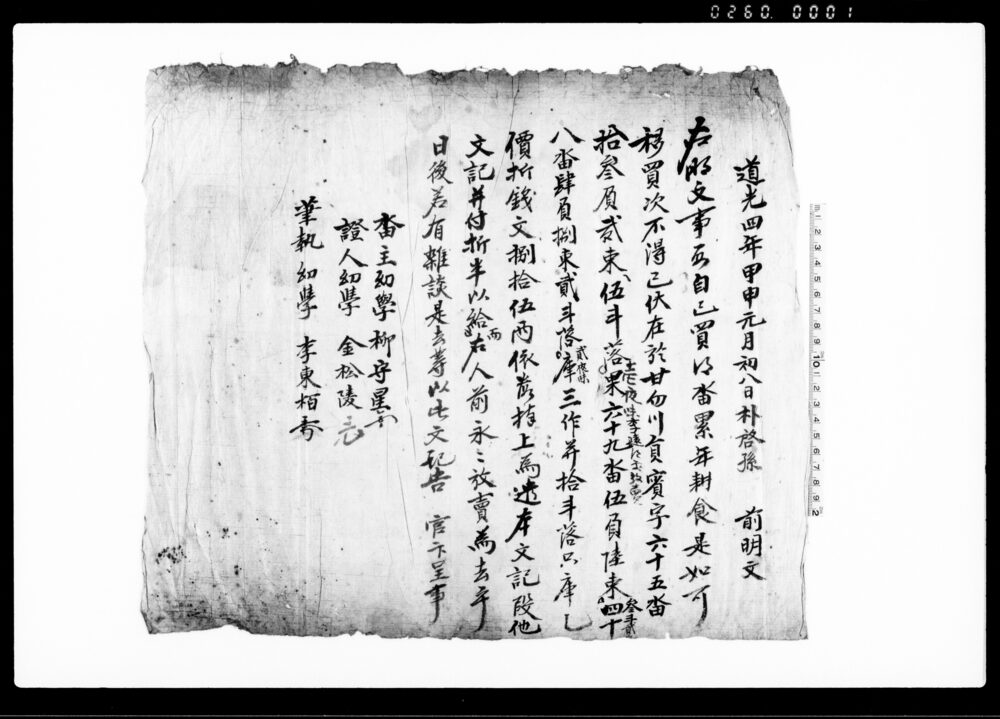 0260. 0001
道光四年甲申元月初八日朴啓孫 前明文
右明文事段自己買得畓累年耕食是如可
移買次不得已伏在於甘勿川員賓字六十五畓
拾叁負貳束伍斗落果六十九畓伍負陸束叁斗落四十
八畓肆負捌束貳斗落庫三作幷拾斗落只庫乙
價折錢文捌拾伍兩依數捧上爲遣本文記段他
文記幷付折半以給而右人前永永放賣爲去乎
日後若有雜談是去等以此文記告 官卞呈事
畓主幼學 柳
證人幼學 金松陵
筆執幼學 李東栢